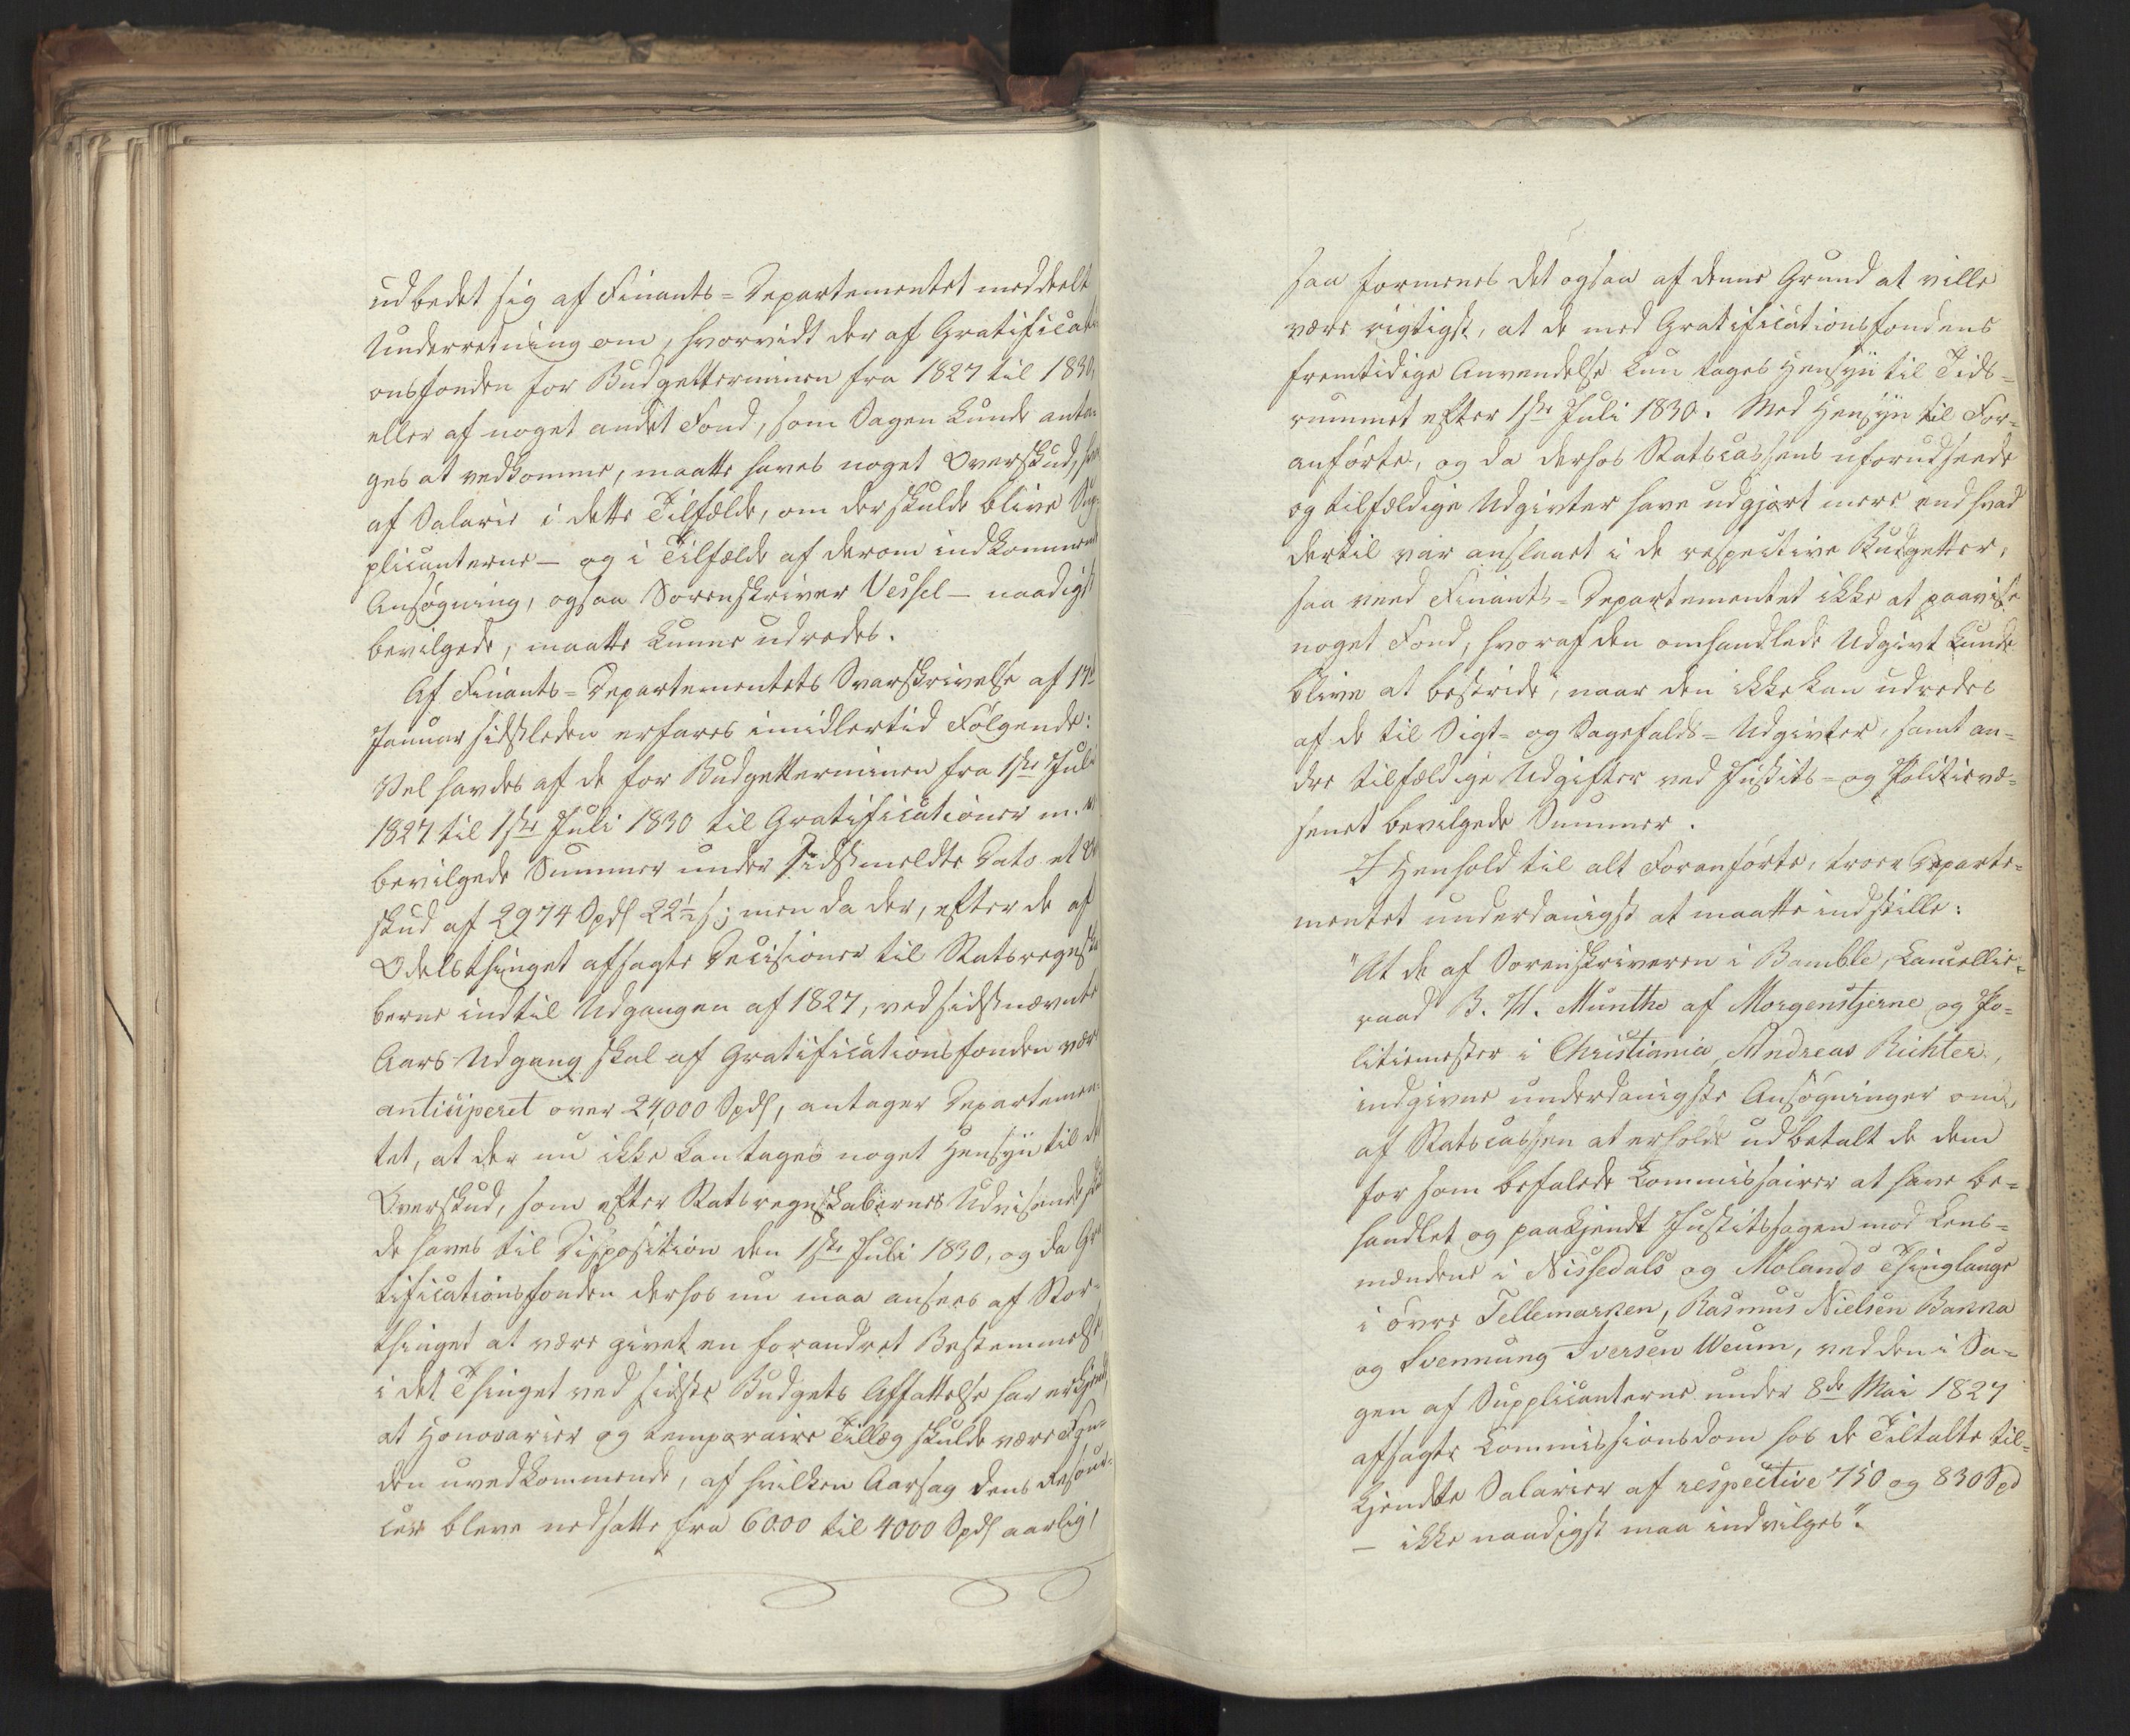 udbedet sig af Finants-Departementet meddeelt
Underretning om, hvorvidt der af Gratificati
onsfonden for Budgetterminen fra 1827 til 1830,
eller af noget andet Fond, som Sagen kunde anta-
ges at vedkomme, maatte haves noget Overskud, hvor
af Salarie i dette Tilfælde, om der skulde blive Sup-
plicanterne – og i Tilfælde af derom indkommend
Ansøgning, ogsaa Sorenskriver Vessel – naadigst
bevilgede, maatte kunne udredes.
Af Finants-Departementets Svarskrivelse af 17de
Januar sidstleden erfares imidlertid Følgende:
Vel havdes af de for Budgetterminen fra 1ste Juli
1827 til 1ste Juli 1830 til Gratificationer m. v.
bevilgede Summer under sidstmeldte Dato et Over
skud af 2974 Spdl 22½ s; men da der, efter de af
Odelsthinget afsagte Decisioner til Statsregnska
berne indtil Udgangen af 1827, ved sidstnævnte
Aars Udgang skal af Gratificationsfonden være
anticiperet over 24,000 Spdl, antager Departemen-
tet, at der nu ikke kan tages noget Hensyn til det
Overskud, som efter Statsregnskabernes Udvisende skul
de haves til Disposition den 1ste Juli 1830, og da Gra
tificationsfonden derhos nu maa ansees af Stor-
thinget at være givet en forandret Bestemmelse
i det Thinget ved sidste Budgets Affattelse har erkjendt,
at Honorarier og temporaire Tillæg skulde være Fon-
den uvedkommende, af hvilken Aarsag dens Ressour-
cer bleve nedsatte fra 6000 til 4000 Spdl aarlig,
saa formenes det ogsaa af denne Grund at ville
være rigtigst, at de med Gratificationsfondens
fremtidige Anvendelse kun tages Hensyn til Tids-
rummet efter 1ste Juli 1830. Med Hensyn til For-
anførte, og da derhos Statscassens uforudseede
og tilfældige Udgivter have udgjort mere end hvad
dertil var anslaaet i de respective Budgetter,
saa veed Finants-Departementet ikke at paavise
noget Fond, hvoraf den omhandlede Udgivt kunde
blive at bestride, naar den ikke kan udredes
af de til Sigt- og Sagefalds-Udgivter, samt an-
dre tilfældige Udgifter ved Justits- og Politievæ-
senet bevilgede Summer.
I Henhold til alt Foranførte, troer Departe-
mentet underdanigst at maatte indstille:
"At de af Sorenskriveren i Bamble, Cancellie-
raad B. M. Munthe af Morgenstjerne og Po-
litiemester i Christiania, Andreas Richter,
indgivne underdanigste Ansøgninger om,
af Statscassen at erholde udbetalt de dem
for som befalede Commissairer at have be-
handlet og paakjendt Justitssagen mod Lens-
mændene i Nissedals og Molands Thinglauge
i øvre Tellemarken, Rasmus Nielsen Bakka
og Svennung Iversen Weum, ved den i Sa-
gen af Supplicanterne under 8de Mai 1827
afsagte Commissionsdom hos de Tiltalte til-
kjendte Salarier af respective 750 og 830 Spd
– ikke naadigst maa indvilges".